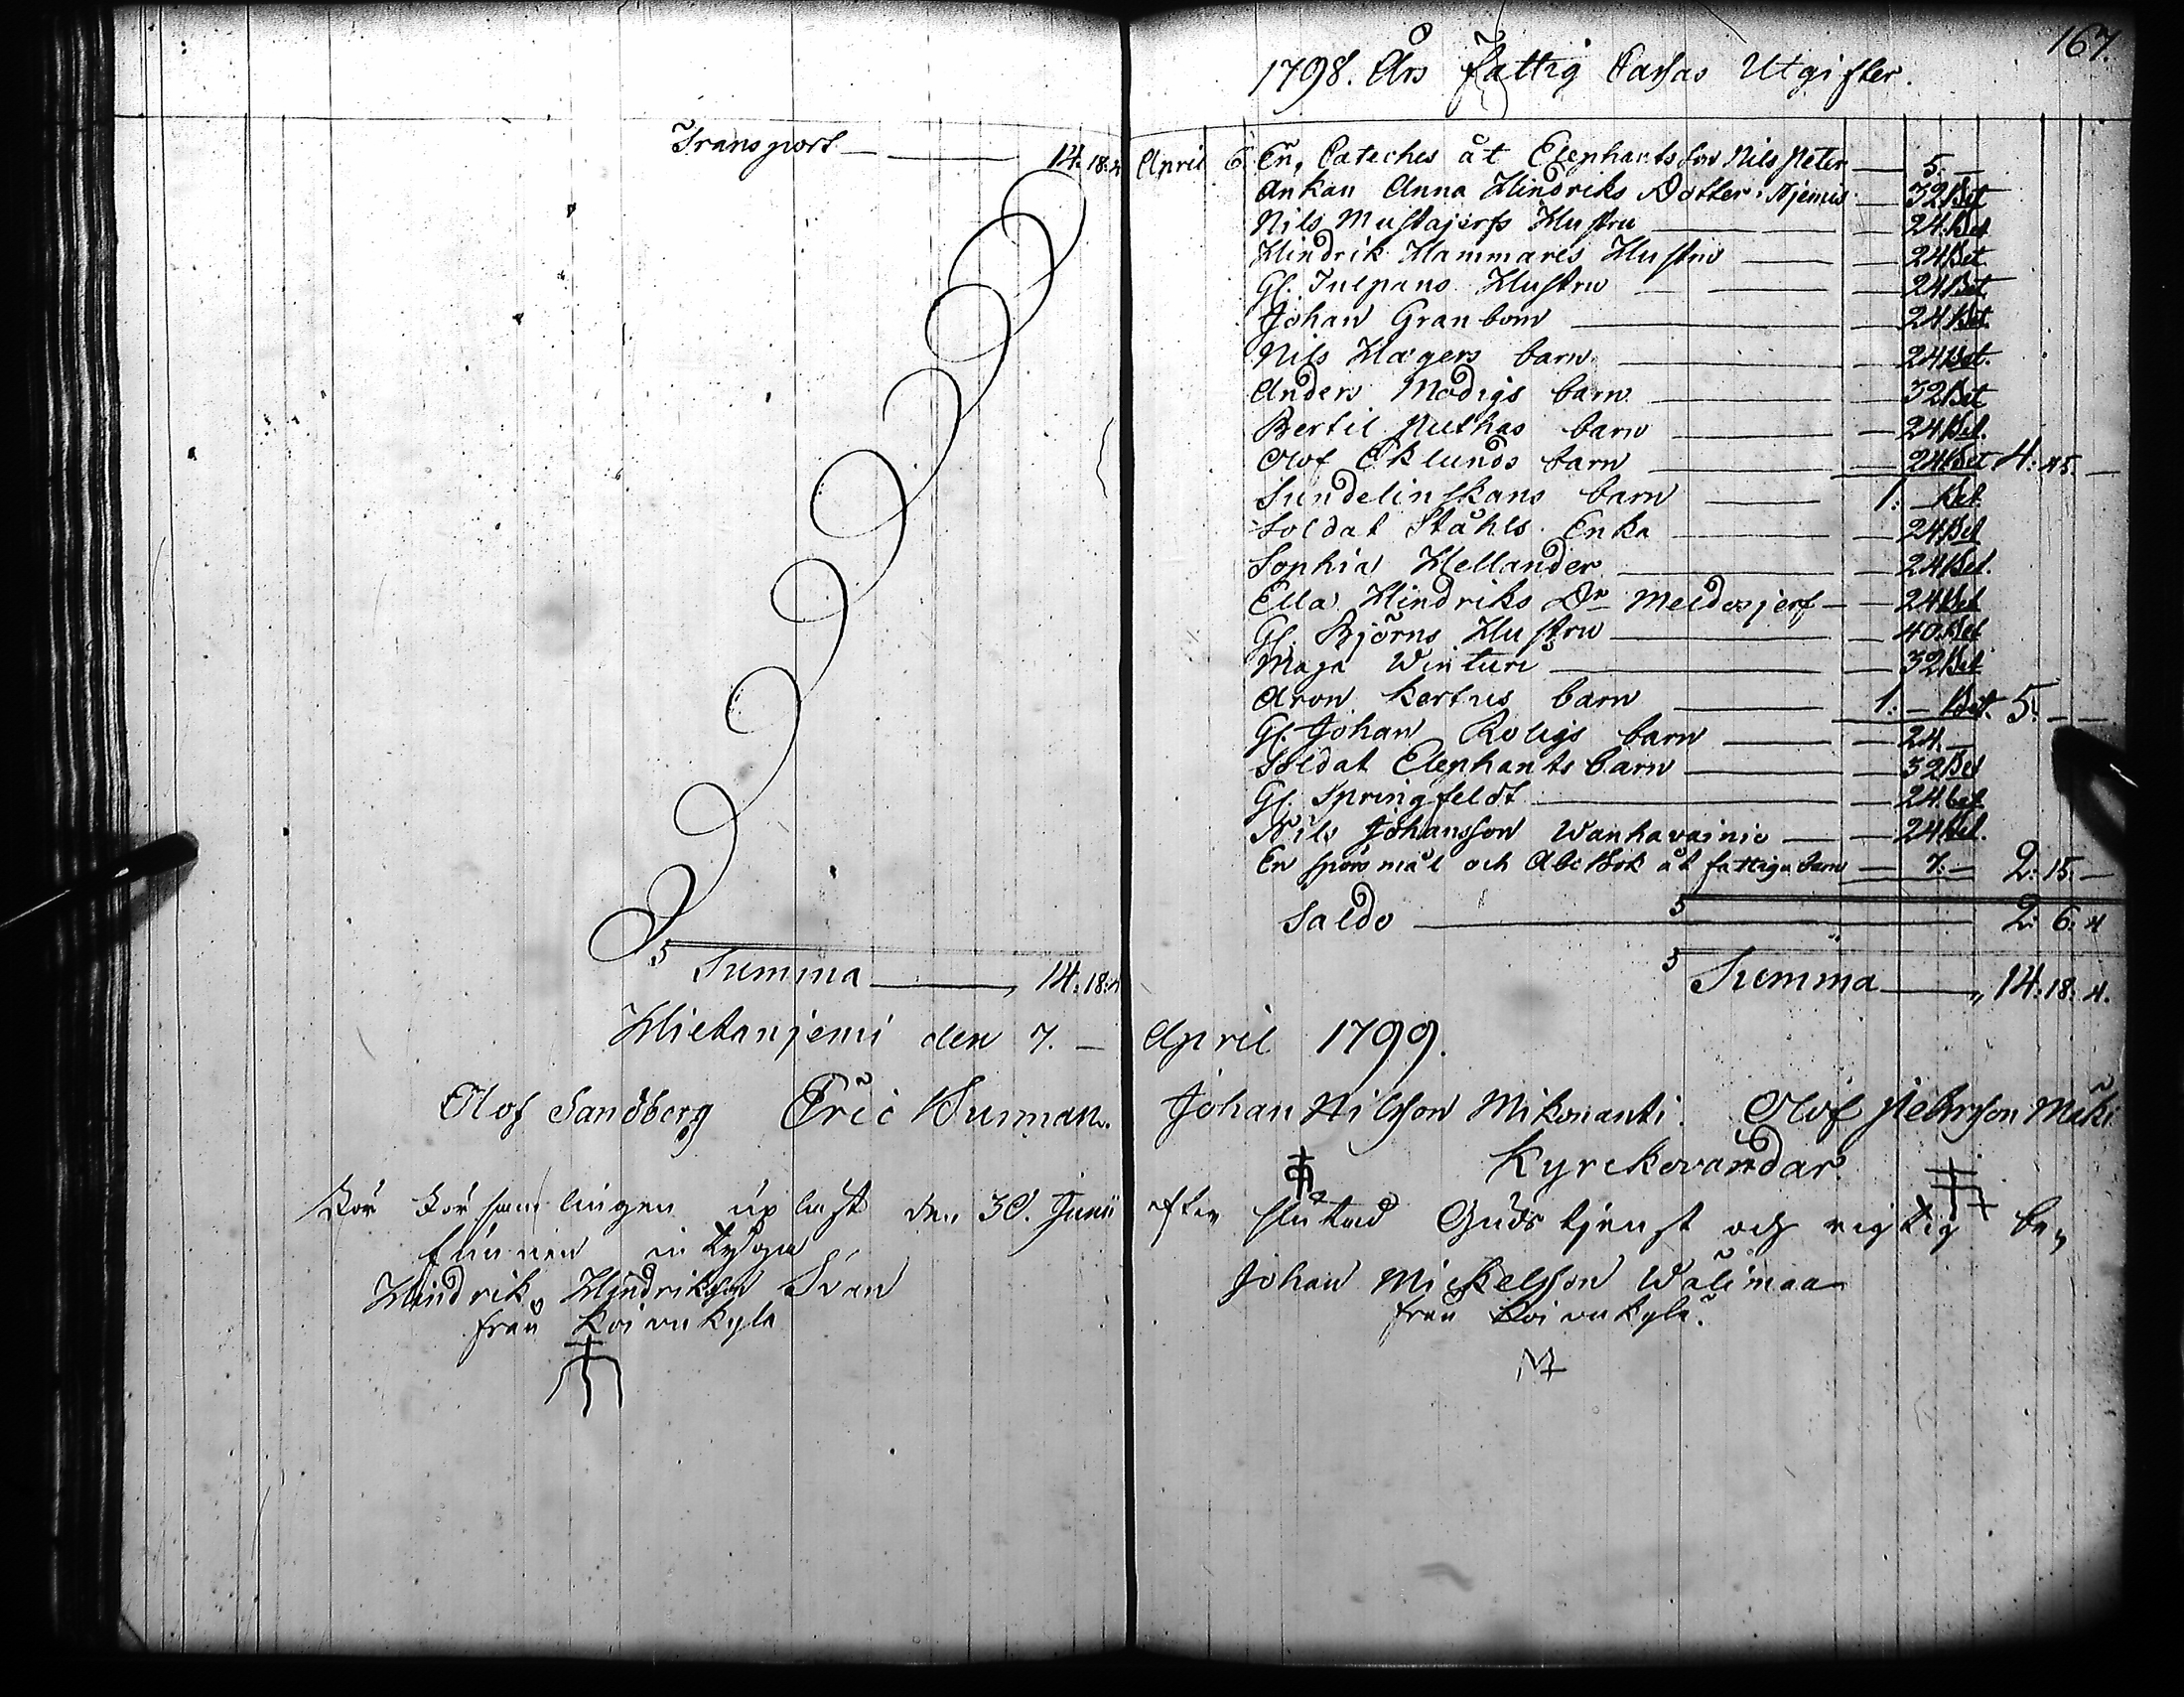 167.
1798. Års Fattig Cassas Utgifter.
Transport 14: 18: 4
April 6. En Cateches åt Elephants Son Nils Peter 5. —
Änkan Anna Hindriks Dotter 32 Bet
Nils Mustajerfs Hustru 24 Bet
Hindrik Hammares Hustru 24 Bet
Gl. Tulpans Hustru 24 Bet
Johan Granbom 24 Bet
Nils Hagers barn 24 Bet.
Anders Modigs barn 32 Bet
Bertil Puthas barn 24 Bet.
Olof Eklunds barn 24 Bet 4: 45. —
Sundelinskans barn 1: — Bet
Soldat Ståhls Enka 24 Bet
Sophia Hellander 24 Bet.
Ella Hindriks Dr Meldosjerf 24 Bet
Gl. Björns Hustru 40 Bet
Maja Winturi 32 Bet
Aron Kertus barn 1: — Bet. 5: — —
Gl. Johan Roligs barn 24 —
Soldat Elephants barn 32 Bet
Gl. Springfeldt 24 bet
Nils Johansson Wanhavainio 24 Bet.
En spörsmål och Abc Bok åt fattiga barn 7: — 2: 15: —
Saldo 2: 6: 4
Summa 14: 18: 4
Summa 14: 18: 4.
Hietanjemi den 7. — April 1799.
Olof Sandberg Eric Burman. Johan Nilsson Mikonanti. Olof Pehrsson Mäki
Kyrckovärdar.
För Församlingen upläst den 30. Junii efter slutad Gudstjenst och rigtig be-
funnen intyga
Hindrik Hindriksson Svan Johan Mickelsson Wälimaa
från Koivukylä från Koivukylä.